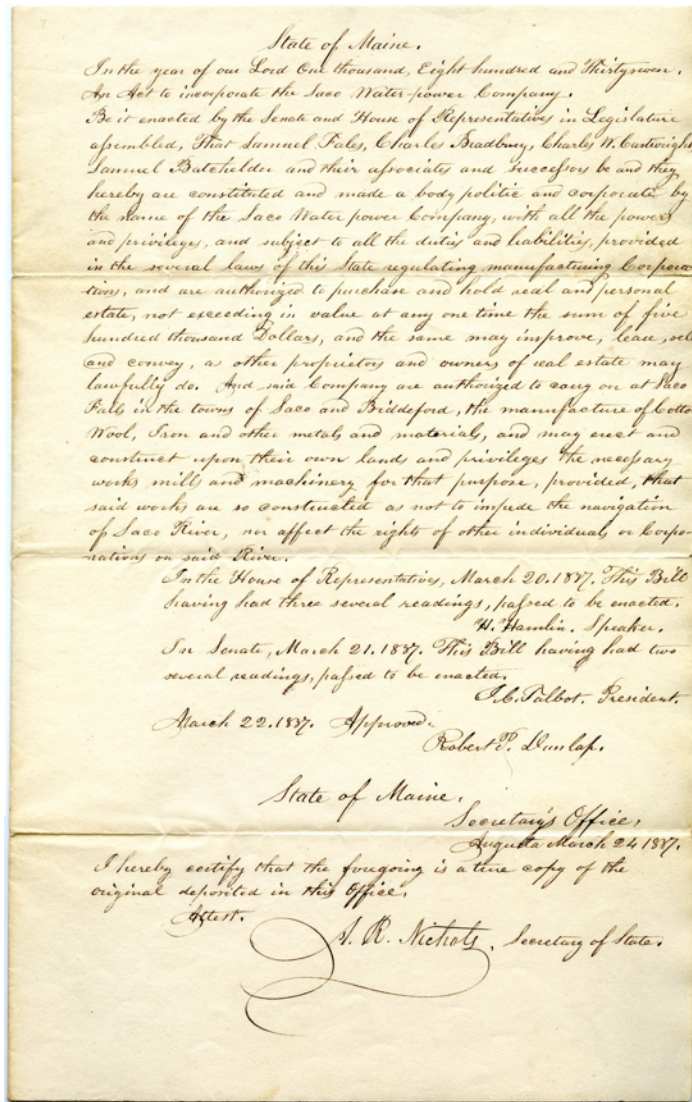 State of Maine.
In the year of our Lord One thousand, Eight hundred and Thirtyseven.
An Act to incorporate the Saco Water-power Company.
Be it enacted by the Senate and House of Representatives in Legislature
assembled, That Samuel Fales, Charles Bradbury, Charles W. Cartwright
Samuel Batchelder and their associates and successors be and they
hereby are constituted and made a body politic and corporate by
the name of the Saco Water power Company, with all the powers
and privileges, and subject to all the duties and liabilities, provided
in the several laws of this State regulating manufacturing Corpora
tions, and are authorized to purchase and hold real and personal
estate, not exceeding in value at any one time the sum of five
hundred thousand Dollars, and the same may improve, lease, sell
and convey, as other proprietors and owners of real estate may
lawfully do. And said Company are authorized to carry on at Saco
Falls in the towns of Saco and Biddeford, the manufacture of Cotto
Wool, Iron and other metals and materials, and may erect and
construct upon their own lands and privileges the necessary
works mills and machinery for that purpose, provided, that
said works are so constructed as not to impede the navigation
of Saco River, nor affect the rights of other individuals or Corpo-
rations on said River.
In the House of Representatives, March 20. 1837. This Bill
having had three several readings, passed to be enacted.
H. Hamlin. Speaker.
In Senate, March 21. 1837. This Bill having had two
several readings, passed to be enacted.
J. C. Talbot. President.
March 22. 1837. Approved.
Robert P. Dunlap.
State of Maine.
Secretary's Office,
Augusta March 24 1837.
I hereby certify that the foregoing is a true copy of the
original deposited in this Office.
Attest.
A. R. Nichols. Secretary of State.